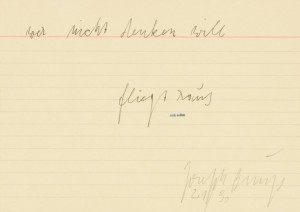 wer nicht denken will
fliegt raus
Joseph Beuys